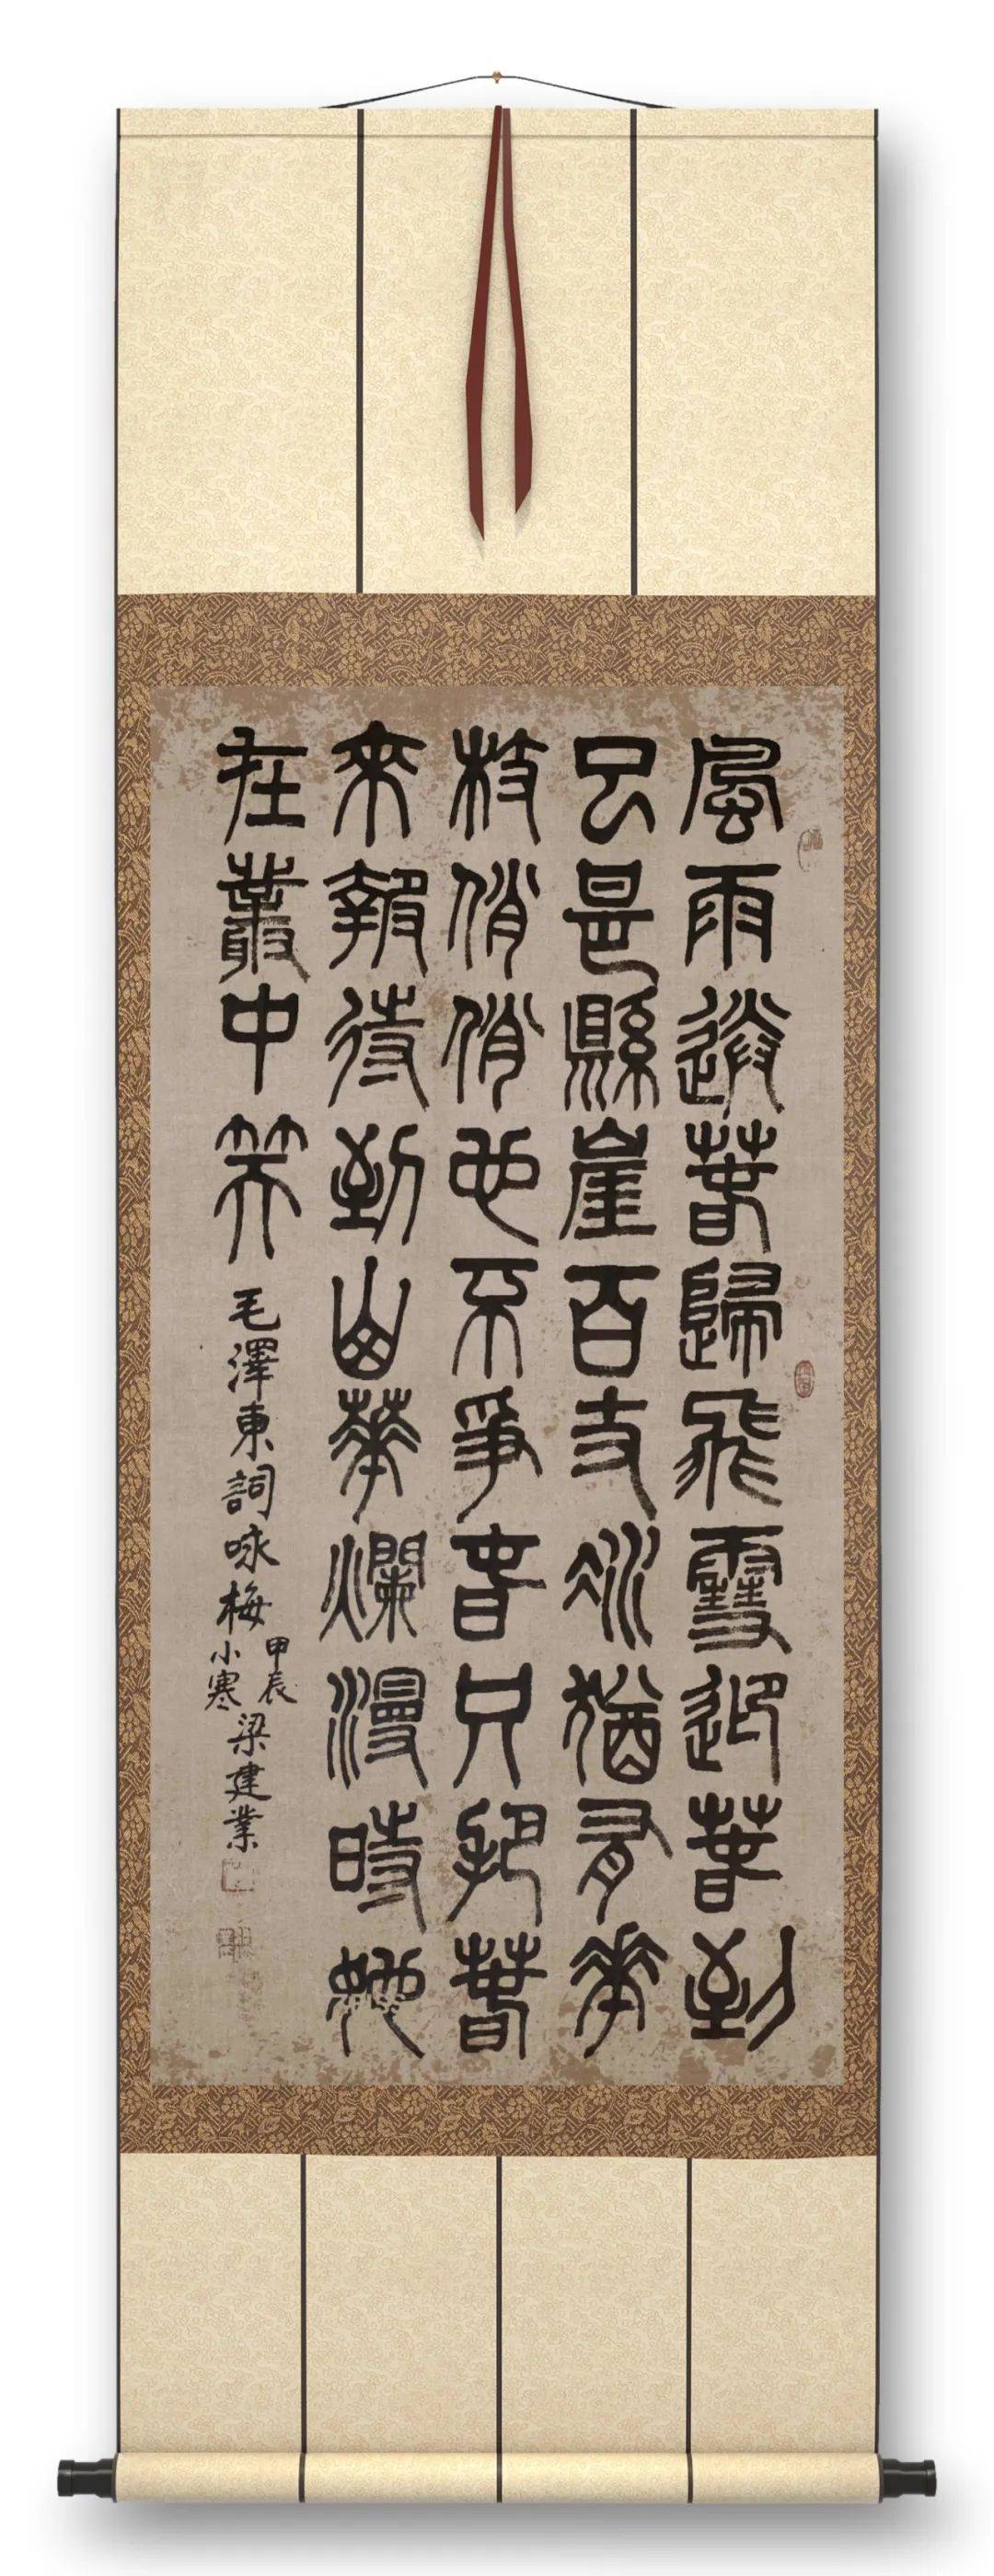 風雨送春歸飛雪迎春到
已是縣崖百丈冰猶有華
枝俏俏也不爭春只把春
來報待到山華爛漫時她
在叢中笑
毛澤東詞咏梅
甲辰
小寒
梁建業